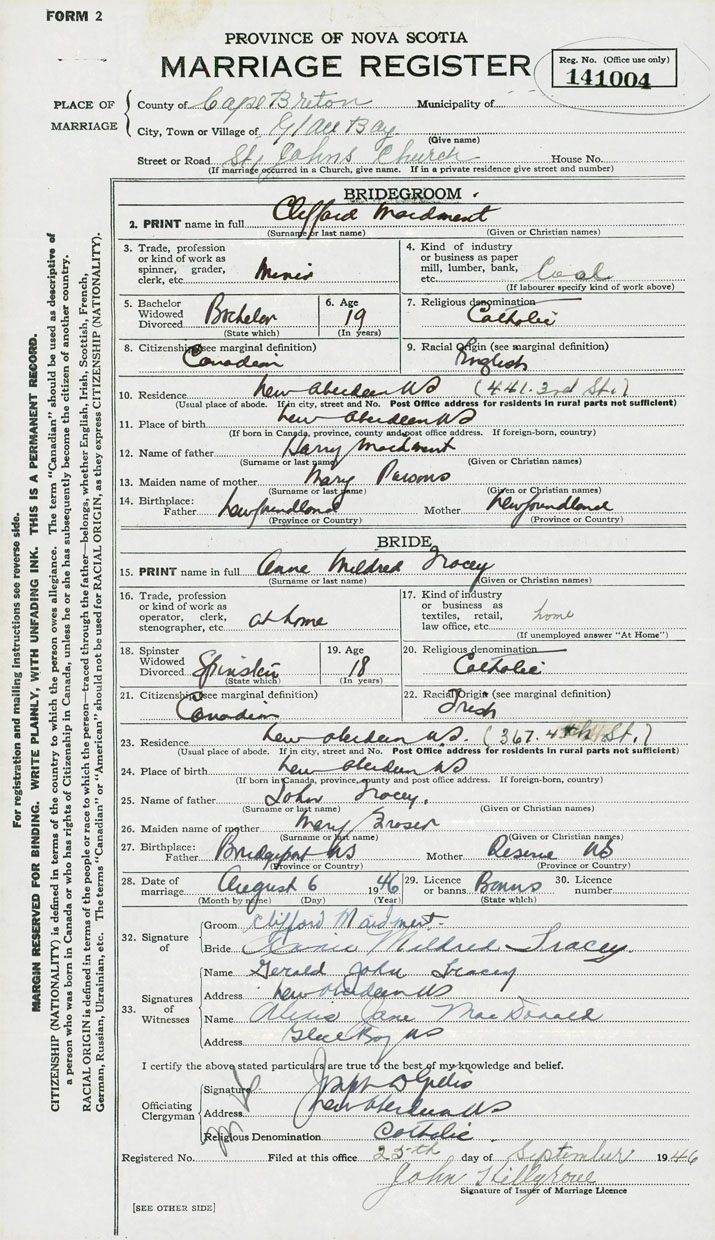 FORM 2
PROVINCE OF NOVA SCOTIA
MARRIAGE REGISTER
Reg. No. (Office use only)
141004
PLACE OF MARRIAGE
County of Cape Breton Municipality of
City, Town or Village of Glace Bay
(Give name)
Street or Road St. Johns Church House No.
(If marriage occurred in a Church, give name. If in a private residence give street and number)
BRIDEGROOM.
2. PRINT name in full Clifford Maidment
(Surname or last name) (Given or Christian names)
3. Trade, profession or kind of work as spinner, grader, clerk, etc. Miner
4. Kind of industry or business as paper mill, lumber, bank, etc. Coal
(If labourer specify kind of work above)
5. Bachelor Widowed Divorced Bachelor
(State which)
6. Age 19
(In years)
7. Religious denomination Catholic
8. Citizenship (see marginal definition) Canadian
9. Racial Origin (see marginal definition) English
10. Residence New Aberdeen NS (441. 3rd St.)
(Usual place of abode. If in city, street and No. Post Office address for residents in rural parts not sufficient)
11. Place of birth New Aberdeen NS
(If born in Canada, province, county and post office address. If foreign-born, country)
12. Name of father Harry Maidment
(Surname or last name) (Given or Christian names)
13. Maiden name of mother Mary Parsons
(Surname or last name) (Given or Christian names)
14. Birthplace: Father Newfoundland Mother Newfoundland
(Province or Country) (Province or Country)
BRIDE
15. PRINT name in full Anne Mildred Tracey
(Surname or last name) (Given or Christian names)
16. Trade, profession or kind of work as operator, clerk, stenographer, etc. at home
17. Kind of industry or business as textiles, retail, law office, etc. home
(If unemployed answer "At Home")
18. Spinster Widowed Divorced Spinster
(State which)
19. Age 18
(In years)
20. Religious denomination Catholic
21. Citizenship (see marginal definition) Canadian
22. Racial Origin (see marginal definition) Irish
23. Residence New Aberdeen NS. (367. 4th St.)
(Usual place of abode. If in city, street and No. Post Office address for residents in rural parts not sufficient)
24. Place of birth New Aberdeen NS
(If born in Canada, province, county and post office address. If foreign-born, country)
25. Name of father John Tracey.
(Surname or last name) (Given or Christian names)
26. Maiden name of mother Mary
(Surname or last name) (Given or Christian names)
27. Birthplace: Father Bridgeport NS Mother Reserve NS
(Province or Country) (Province or Country)
28. Date of marriage August 6 1946
(Month by name) (Day) (Year)
29. Licence or banns Banns
(State which)
30. Licence number
32. Signature of
Groom Clifford Maidment.
Bride Anne Mildred Tracey.
33. Signatures of Witnesses
Name Gerald John Tracey
Address New Aberdeen NS
Name Jane MacDonald
Address Glace Bay NS
I certify the above stated particulars are true to the best of my knowledge and belief.
Officiating Clergyman
Signature Joseph D
Address New Aberdeen NS
Religious Denomination Catholic.
Registered No. Filed at this office 25th day of September 1946
John
Signature of Issuer of Marriage Licence
[SEE OTHER SIDE]
For registration and mailing instructions see reverse side.
MARGIN RESERVED FOR BINDING. WRITE PLAINLY, WITH UNFADING INK. THIS IS A PERMANENT RECORD.
CITIZENSHIP (NATIONALITY) is defined in terms of the country to which the person owes allegiance. The term "Canadian" should be used as descriptive of
a person who was born in Canada or who has rights of Citizenship in Canada, unless he or she has subsequently become the citizen of another country.
RACIAL ORIGIN is defined in terms of the people or race to which the person—traced through the father—belongs, whether English, Irish, Scottish, French,
German, Russian, Ukrainian, etc. The terms "Canadian" or "American" should not be used for RACIAL ORIGIN, as they express CITIZENSHIP (NATIONALITY).